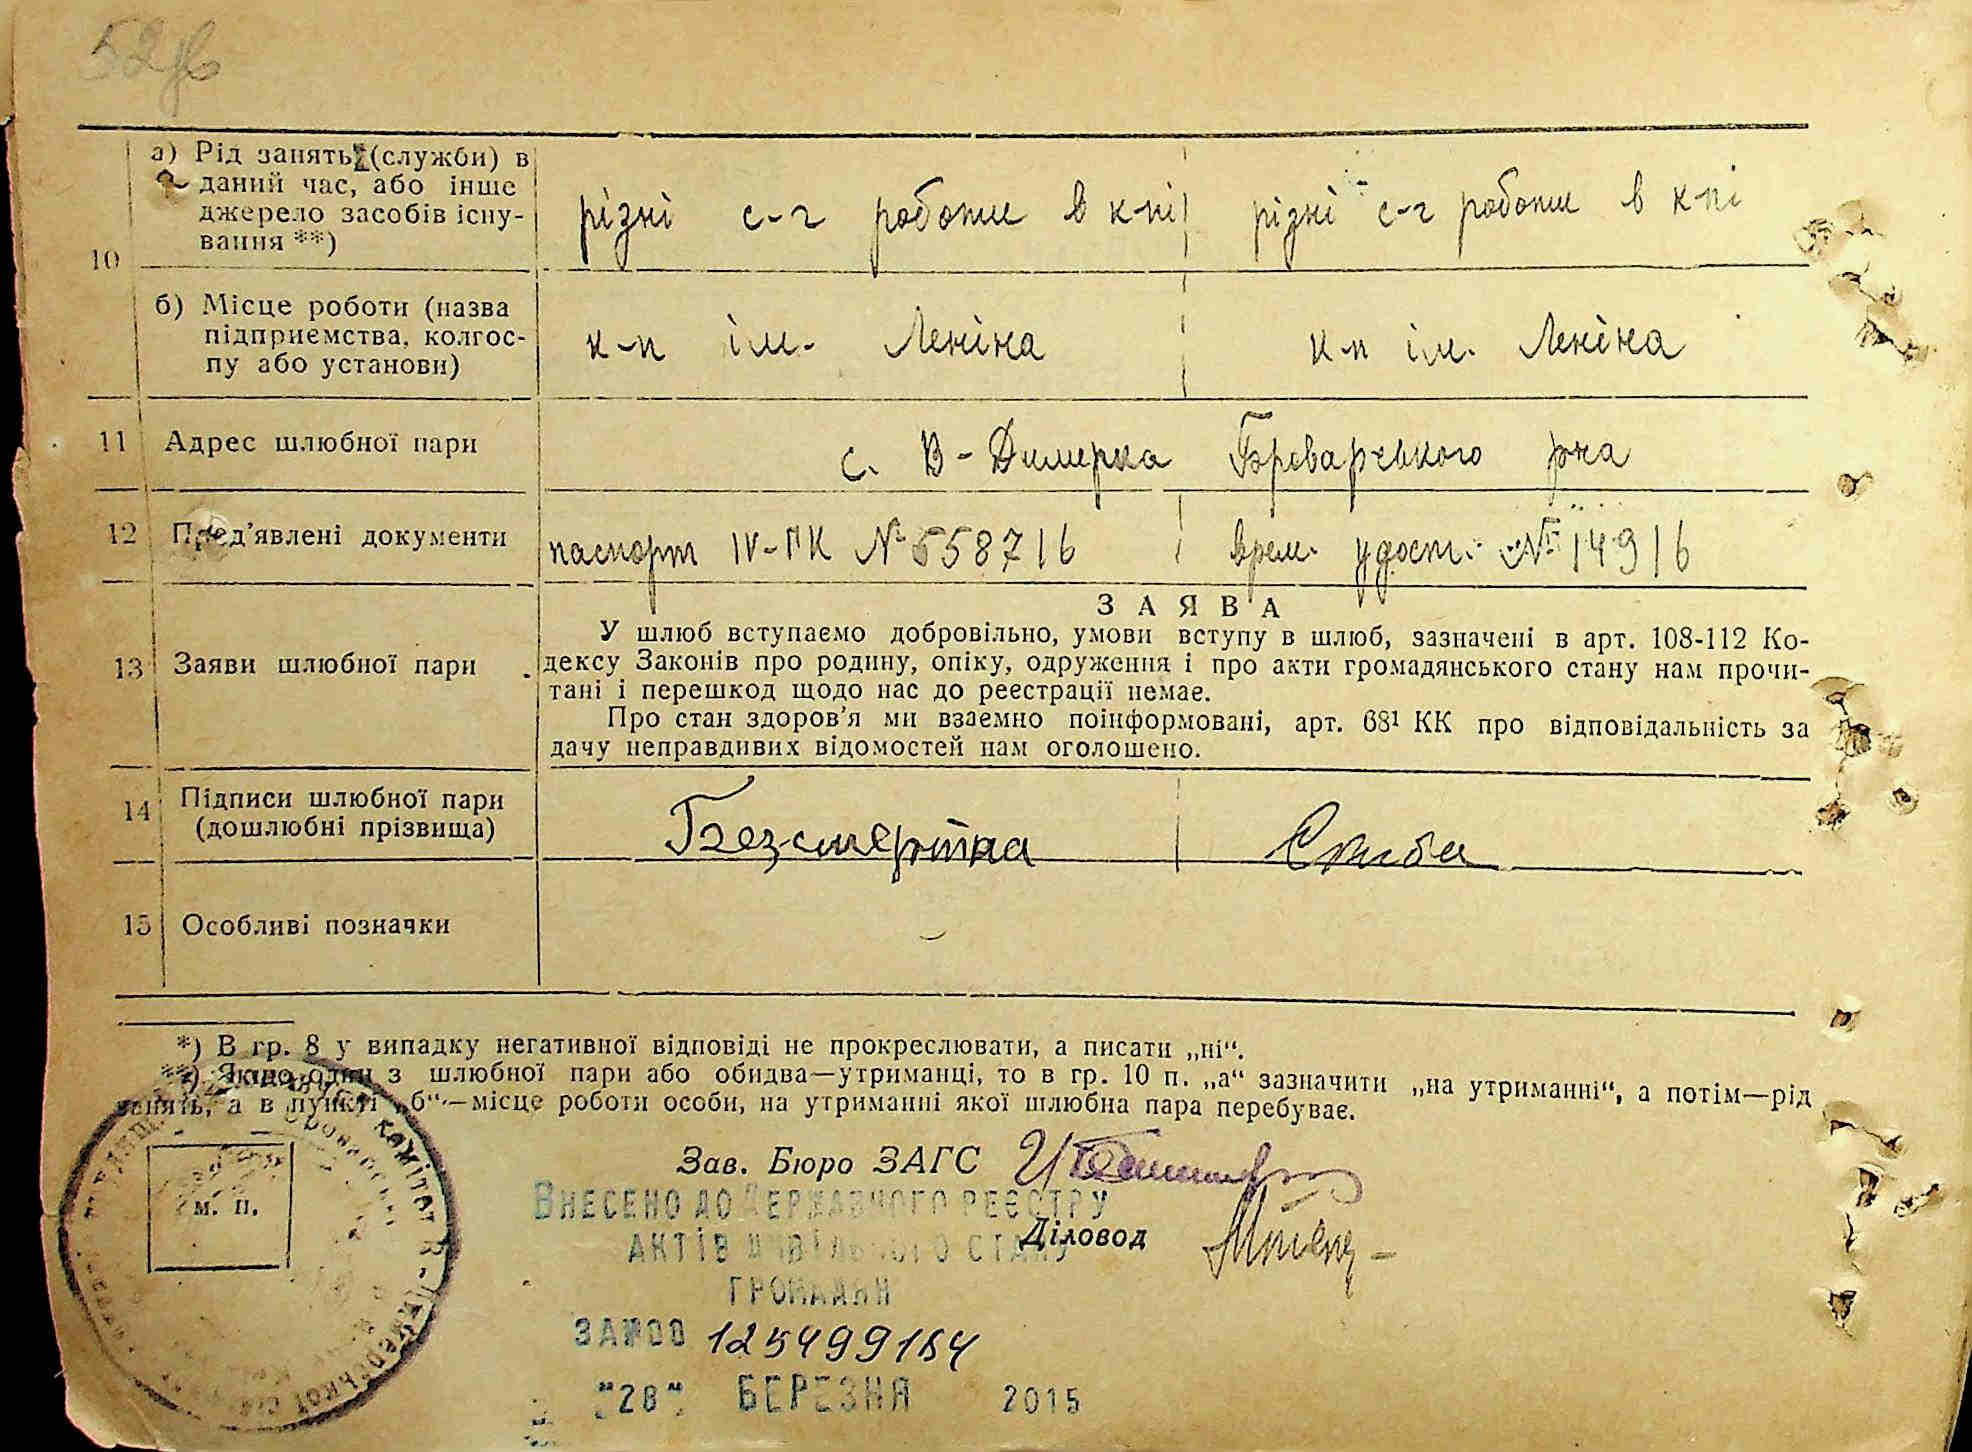 52
10
а) Рід занять (служби) в
даний час, або інше
джерело засобів існу-
вання **)
різні с-г роботи в к-пі
різні с-г роботи в к-пі
б) Місце роботи (назва
підприємства, колгос-
пу або установи)
к-п ім. Леніна
к-п ім. Леніна
11 Адрес шлюбної пари
с. В-Димерка Броварського р-на
12 Пред’явлені документи
паспорт IV-ГК № 558716
врем. удост. № 14916
13 Заяви шлюбної пари
ЗАЯВА
У шлюб вступаємо добровільно, умови вступу в шлюб, зазначені в арт. 108-112 Ко-
дексу Законів про родину, опіку, одруження і про акти громадянського стану нам прочи-
тані і перешкод щодо нас до реєстрації немає.
Про стан здоров’я ми взаємно поінформовані, арт. 68¹ КК про відповідальність за
дачу неправдивих відомостей нам оголошено.
14 Підписи шлюбної пари
(дошлюбні прізвища)
Безсмертна
15 Особливі позначки
*) В гр. 8 у випадку негативної відповіді не прокреслювати, а писати „ні“.
**) Якщо один з шлюбної пари або обидва—утриманці, то в гр. 10 п. „а“ зазначити „на утриманні“, а потім—рід
занять, а в пункті „б“—місце роботи особи, на утриманні якої шлюбна пара перебуває.
м. п.
Зав. Бюро ЗАГС
Внесено до Державного реєстру
Діловод
актів цивільного стану
громадян
125499184
"28" березня 2015